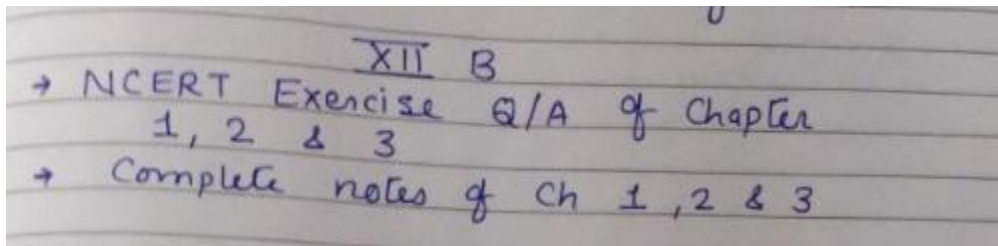 XII B
→ NCERT Exercise Q/A of Chapter
1, 2 & 3
→ Complete notes of Ch 1, 2 & 3